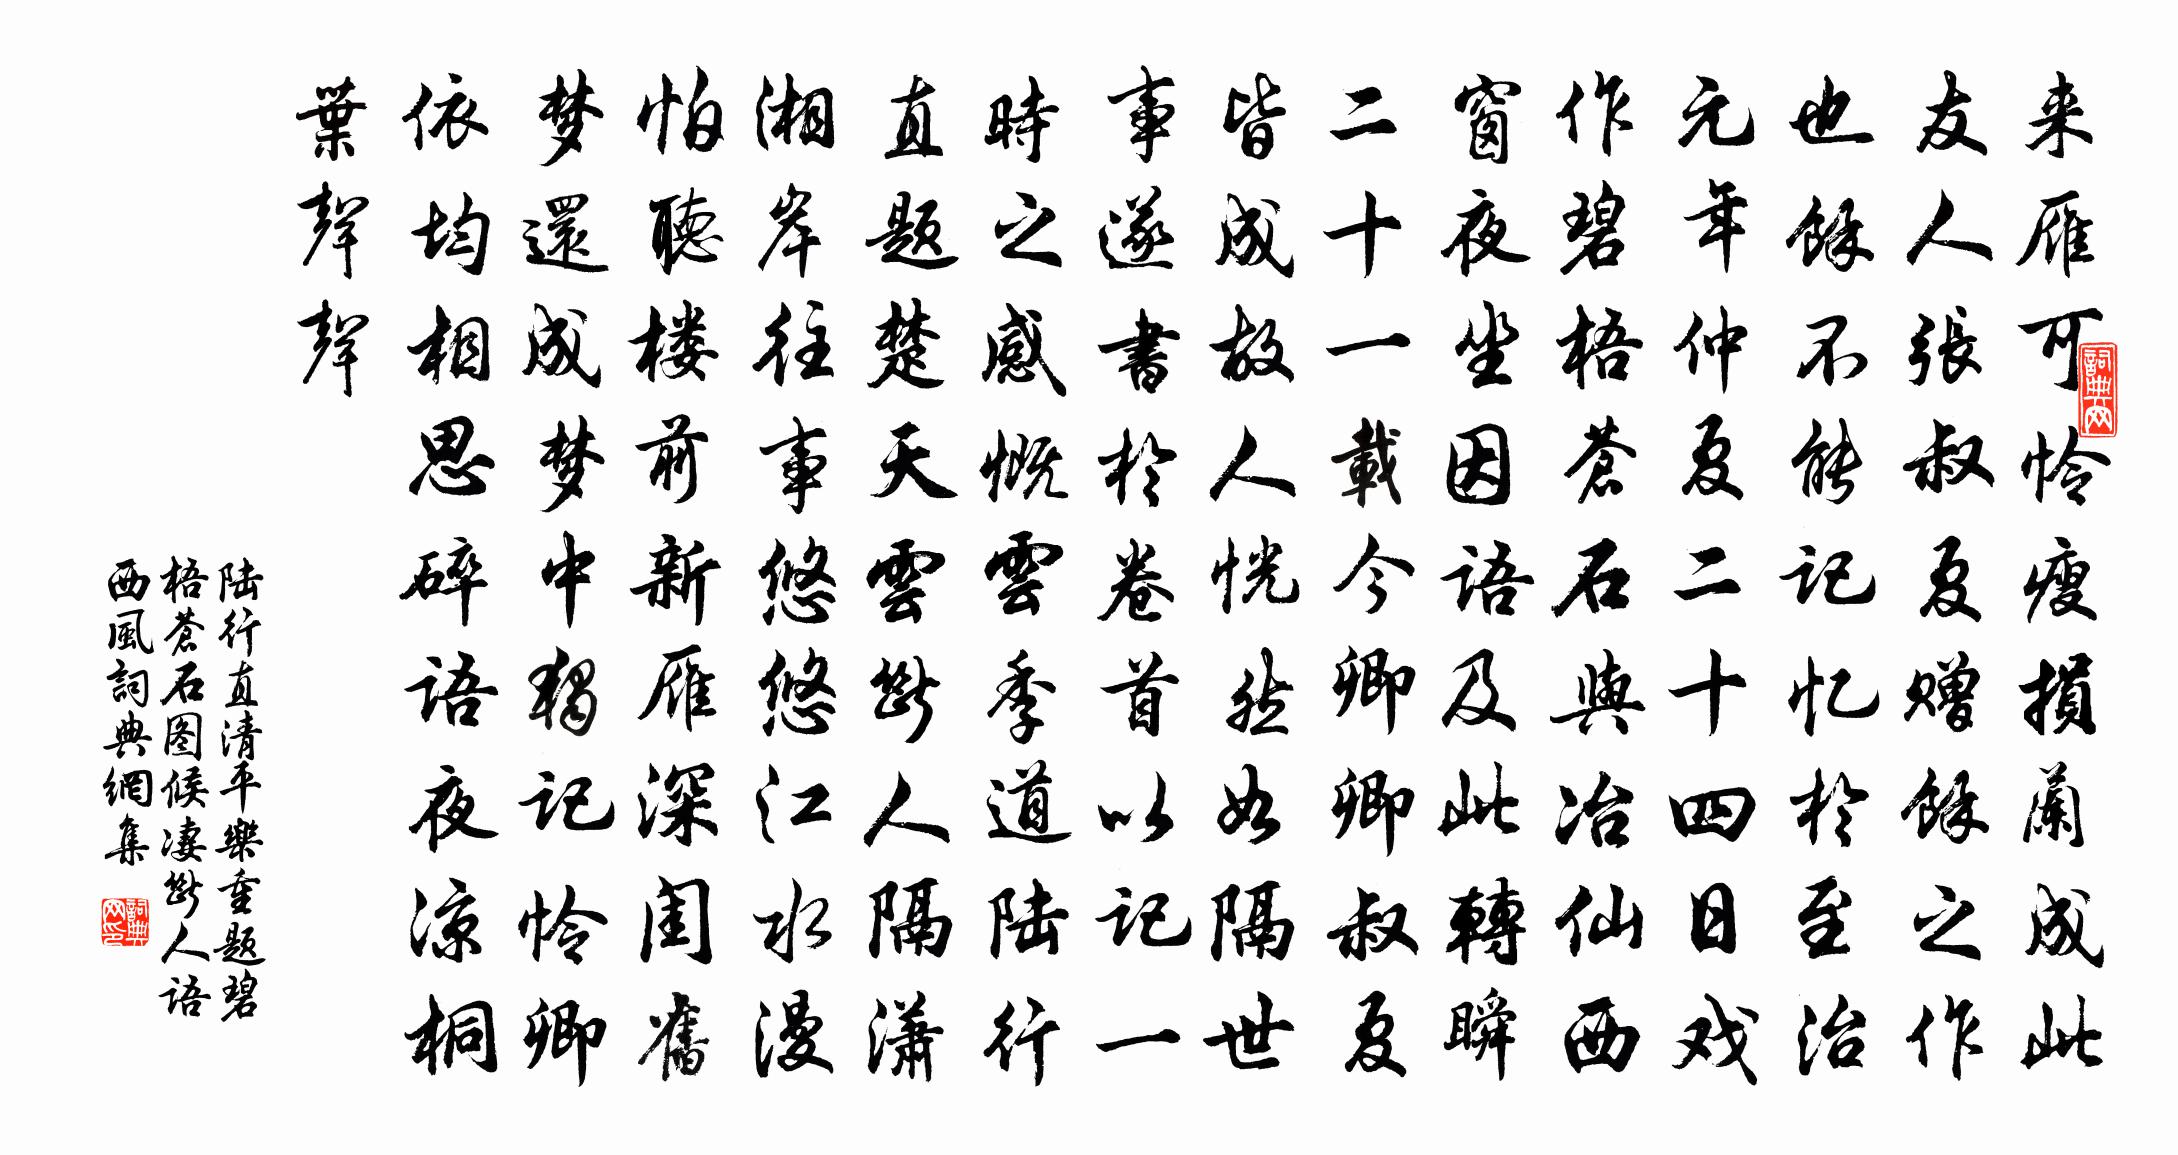 来雁可怜瘦損蘭成此
友人張叔夏赠餘之作
也餘不能记忆於至治
元年仲夏二十四日戏
作碧梧蒼石與冶仙西
窗夜坐因语及此轉瞬
二十一載今卿卿叔夏
皆成故人恍然如隔世
事遂書於卷首以记一
時之感慨雲季道陆行
直题楚天雲斷人隔潇
湘岸往事悠悠江水漫
怕聽楼前新雁深闺舊
梦還成梦中独记怜卿
依均相思碎语夜凉桐
葉聲聲
陆行直清平樂重题碧
梧蒼石图候凄斷人语
西風詞典網集
詞典网
詞典网